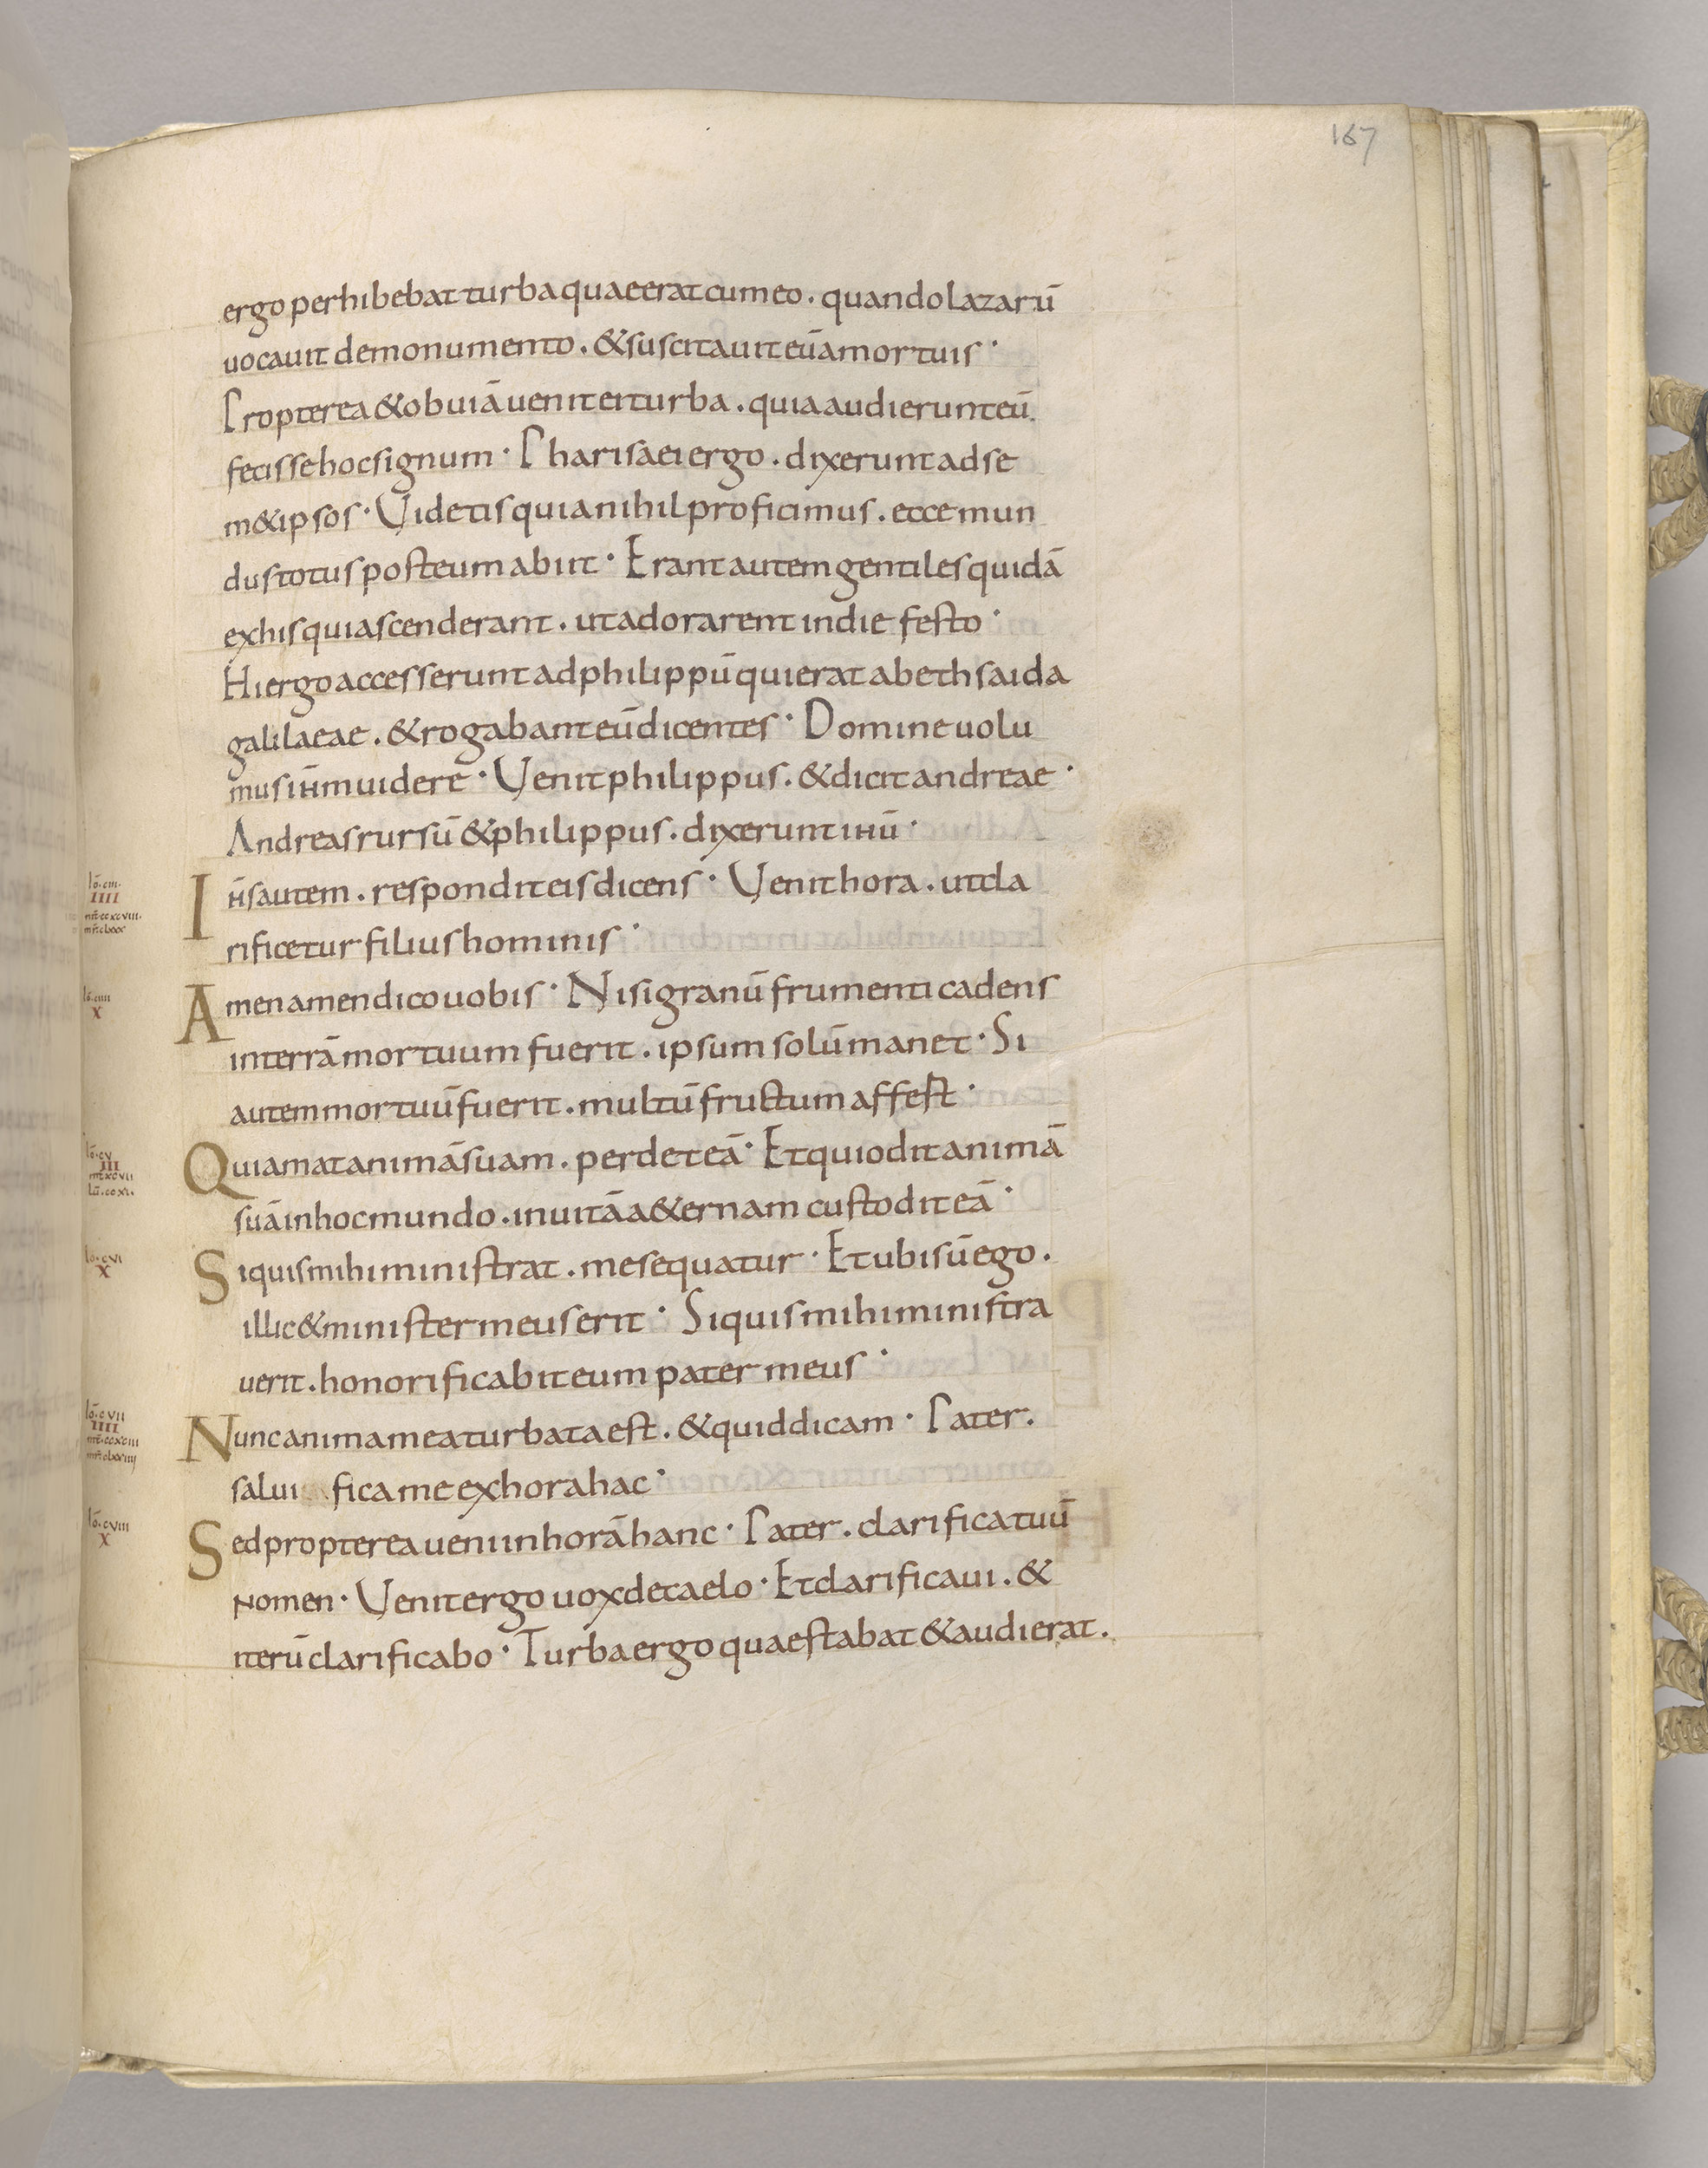 167
ergo perhibebat turba quae erat cum eo. quando lazarū
uocauit de monumento. & suscitauit eū a mortuis·
Propterea & obuiā uenit ei turba. quia audierunt eū
fecisse hoc signum· Pharisaei ergo. dixerunt ad se
m&ipsos· Uidetis quia nihil proficimus. ecce mun
dus totus post eum abiit· Erant autem gentiles quidā
ex his qui ascenderant. ut adorarent in die festo·
Hi ergo accesserunt ad philippū qui erat a bethsaida
galilaeae. & rogabant eū dicentes· Domine uolu
mus ihm uidere· Uenit philippus. & dicit andreae·
Andreas rursū & philippus. dixerunt ihū·
lō·ciii·
IIII
mt̄·ccxcviii·
mr̄·clxxx
Ihs autem. respondit eis dicens· Uenit hora. ut cla
rificetur filius hominis·
lō·ciiii
X
Amen amen dico uobis· Nisi granū frumenti cadens
in terrā mortuum fuerit. ipsum solū manet· Si
autem mortuū fuerit. multū fructum affest·
lō·cv
III
mt̄·xcvii
lū·ccxi·
Qui amat animā suam. perdet eā· Et qui odit animā
suā in hoc mundo. in uitā a&ernam custodit eā·
lō·cvi
X
Si quis mihi ministrat. me sequatur· Et ubi sū ego.
illic & minister meus erit· Si quis mihi ministra
uerit. honorificabit eum pater meus·
lō·cvii
IIII
mt̄·ccxciii
mr̄·clxxiiii
Nunc anima mea turbata est. & quid dicam· Pater.
salui fica me ex hora hac·
lō·cviii
X
Sed propterea ueni in horā hanc· Pater. clarifica tuū
nomen· Uenit ergo uox de caelo· Et clarificaui. &
iterū clarificabo· Turba ergo quae stabat & audierat.